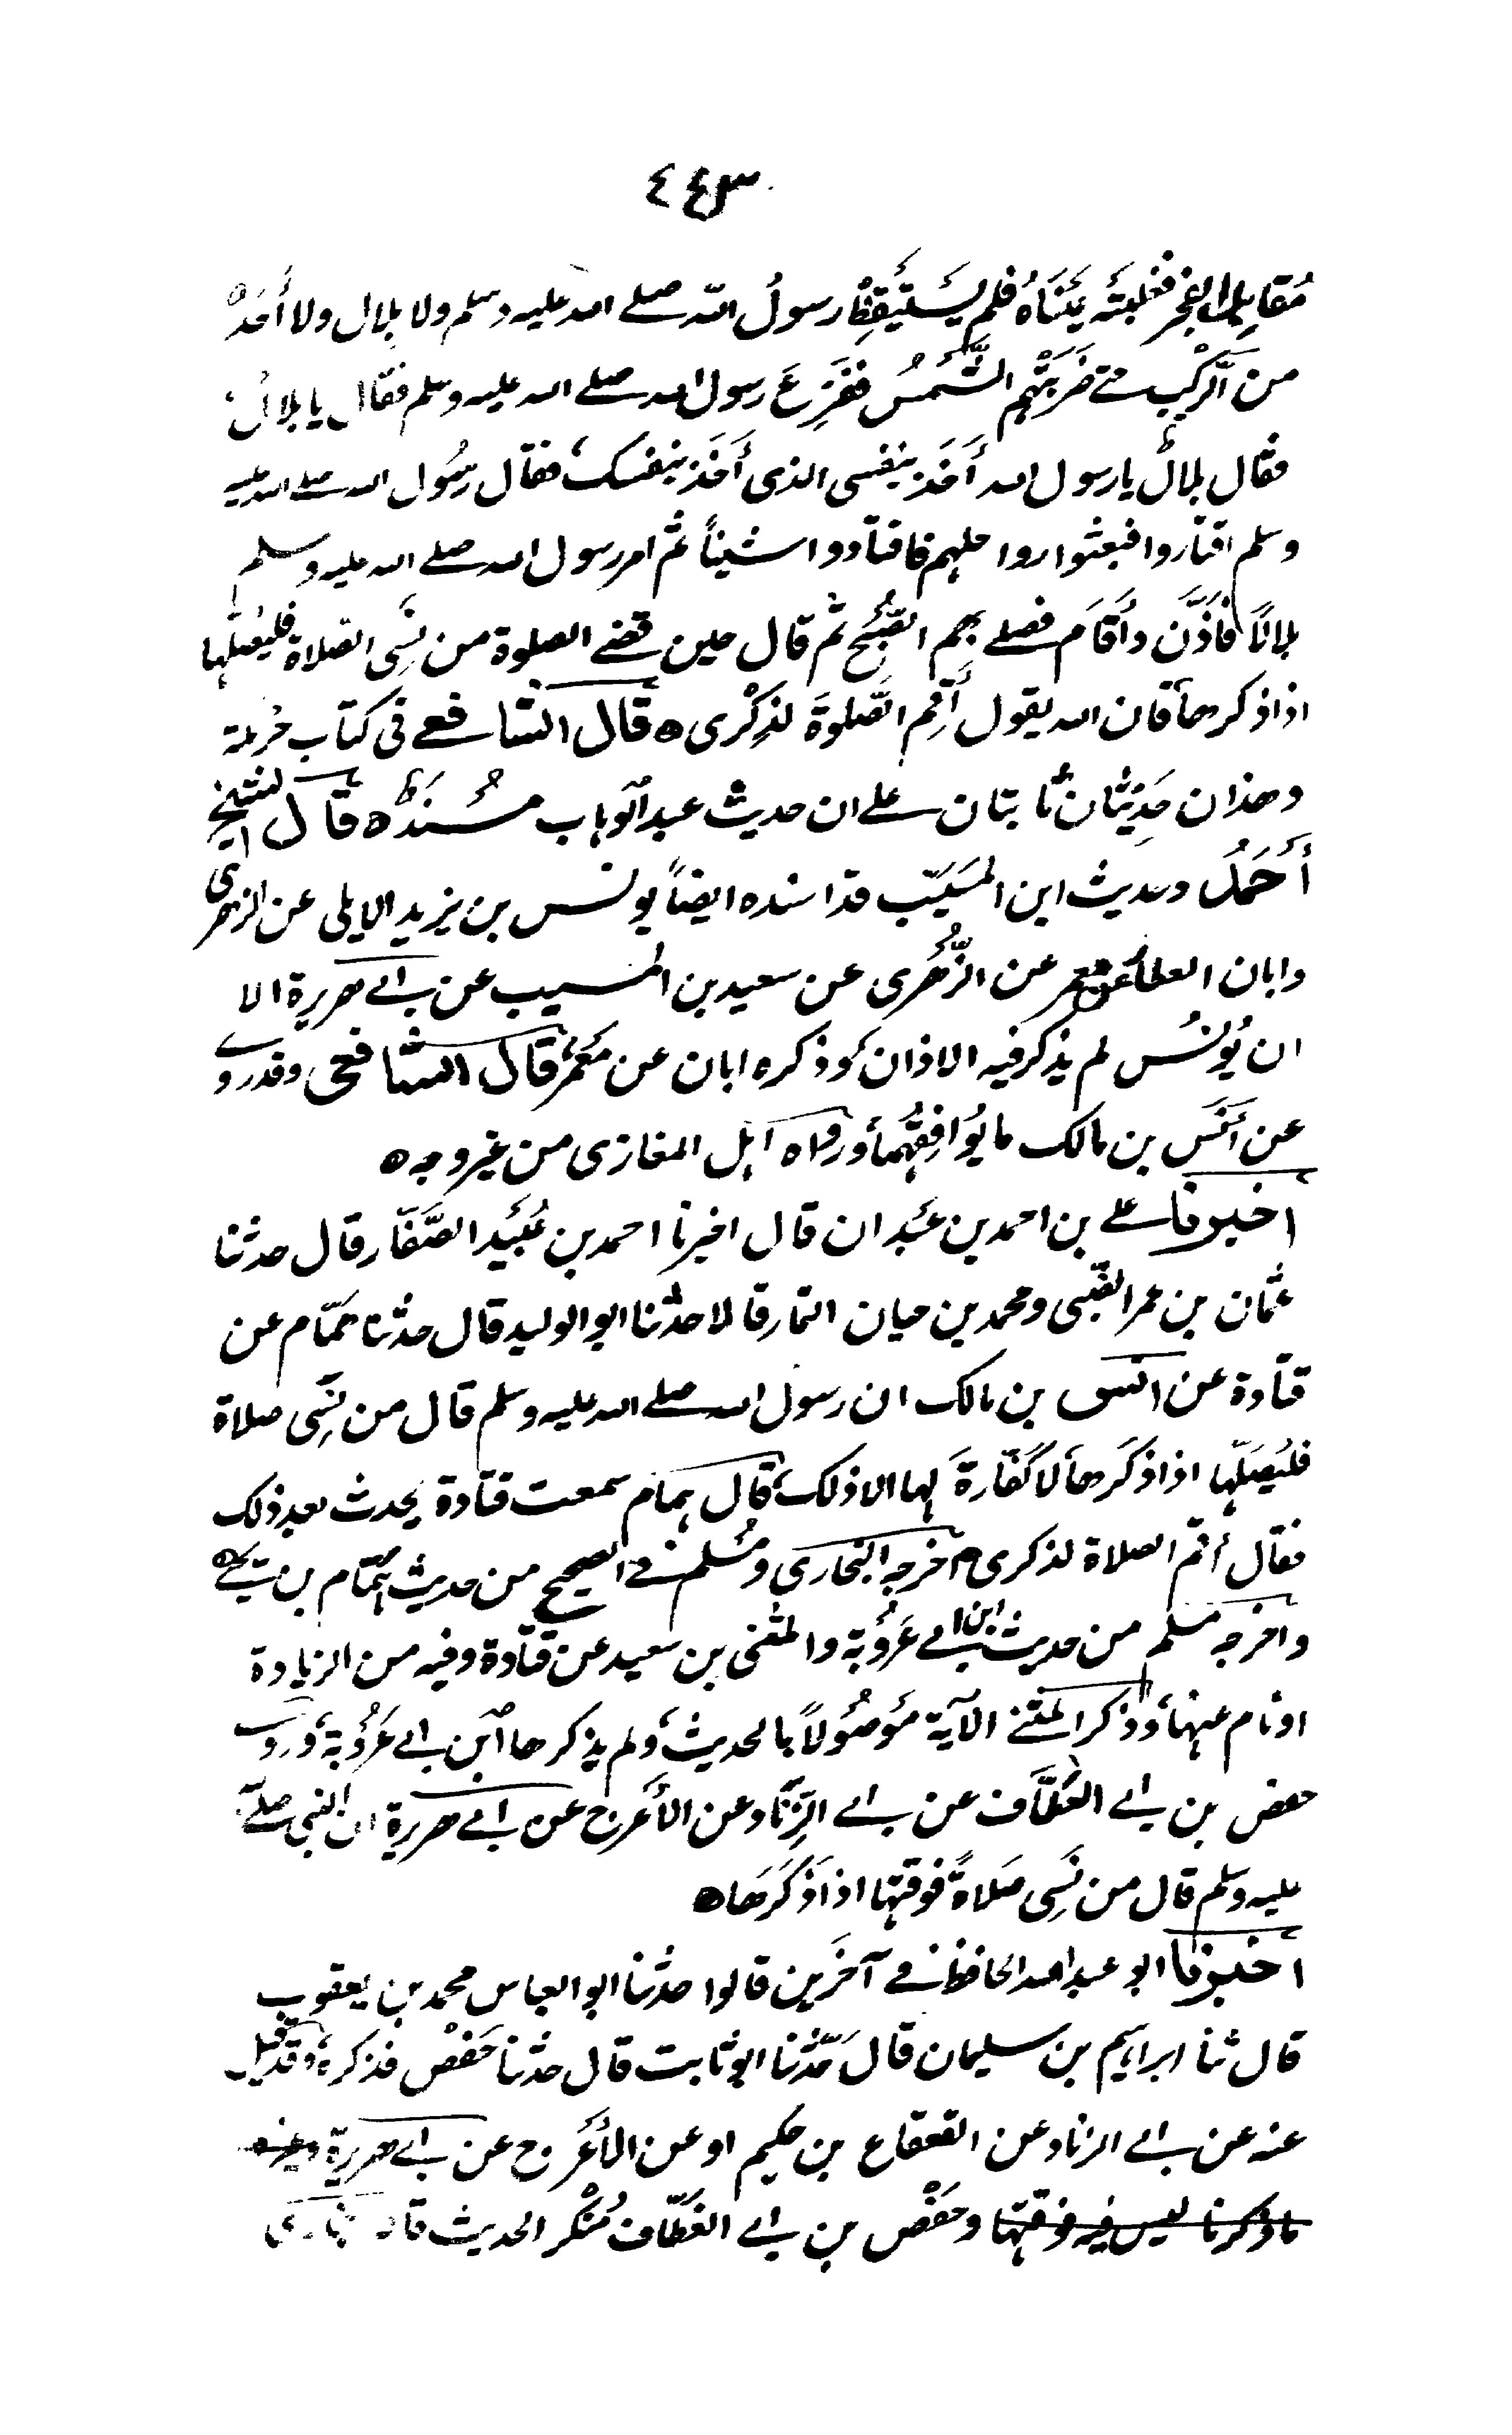 ٤٤٣
مُقابِل الفجر فغلبته عَيْنَاهُ فلم يَسْتَيْقِظْ رسولُ الله صلے الله عليه وسلم ولا بلال ولا أَحَدٌ
من الرَّكْبِ حتے ضَرَبَتْهُم الشَّمْسُ ففَزِعَ رسول الله صلے الله عليه وسلم فقال يا بلالُ
فقال بلالٌ يا رسول الله أَخَذَ بنفسى الذى أَخَذَ بنفسك فقال رسُول الله صلے الله عليه
وسلم اقتاروا فبعثوا رواحلهم فاقتادوا شيئاً ثم امر رسول الله صلے الله عليه وسلم
بلالًا فَأَذَّنَ وأَقَامَ فصلے بهم الصُّبْحَ ثم قال حين قضے الصلوة من نَسِىَ الصلاة فليُصَلِّها
اذا ذكرها فان الله يقول أَقِمِ الصَّلوةَ لِذِكْرى ه قال الشافعے فى كتاب حرملة
وهذان حَدِيثَان ثابتان علے ان حديث عبد الوهاب مُسْنَدٌ ه قال الشيخ
أَحْمَدُ وحديث ابن المسَيّب قد اسنده ايضاً يونس بن يزيد الايلى عن الزهرى
وابان العطار عن معمر عن الزُّهْرى عن سعيد بن المسيب عن ابے هريرة الا
ان يُونُس لم يذكر فيه الاذان وذكره ابان عن مَعْمَر قال الشافعى وقد روے
عن أَنَس بن مالك ما يُوَافِقُهُما ورواه اهل المغازى من غير وجه ه
اخبرنا علے بن احمد بن عَبْدان قال اخبرنا احمد بن عُبَيْد الصَّفَّار قال حدثنا
عثمان بن عمر الضَّبّى ومحمد بن حيان التمار قالا حدثنا ابو الوليد قال حدثنا هَمّام عن
قتادة عن انس بن مالك ان رسول الله صلے الله عليه وسلم قال من نَسِىَ صلاة
فليُصَلِّها اذا ذكَرها لا كَفّارةَ لها الا ذلك قال همام سمعت قتادة يحدث بعد ذلك
فقال أقم الصلاة لذكرى ه اخرجه البخارى ومُسْلم فے الصحيح من حديث هَمّام بن يحيے ه
واخرجه مسلم من حديث ابن ابے عَرُوْبة والمثنى بن سعيد عن قتادة وفيه من الزيادة
او نام عنها وذكر المثنے الآية مَوصُولاً بالحديث ولم يذكرها ابن ابے عَرُوْبة وروے
حفص بن ابے العَطَّاف عن ابے الزِّنَاد عن الأَعْرج عن ابے هريرة ان النبى صلے الله
عليه وسلم قال من نَسِىَ صَلاةً فوقتها اذا ذَكَرَهَا ه
اخبرنا ابو عبد الله الحافظ فے آخَرين قالوا حدثنا ابو العباس محمد بن يعقوب
قال ثنا ابراهيم بن سليمان قال حَدّثنا ابو ثابت قال حدثنا حَفصْ فذكره وقد قيل
عنه عن ابے الزناد عن القعقاع بن حكيم او عن الأَعْرج عن ابے هريرة وغيره
ما ذكرنا ليس فيه فوقتها وحَفْص بن ابے العَطّاف مُنْكر الحديث قاله البخارى